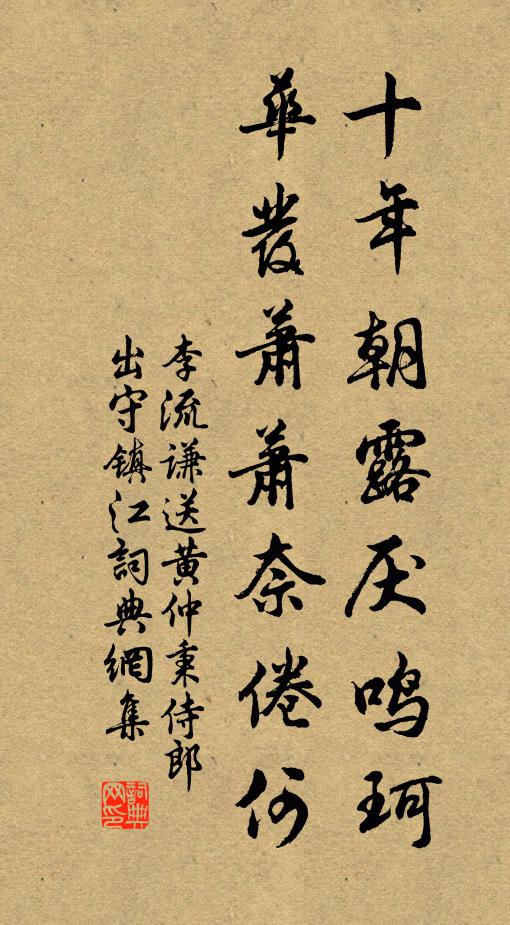 十年朝露厌鸣珂
華發蕭蕭奈倦何
李流謙送黄仲秉侍郎
出守鎮江詞典網集
詞典
网印